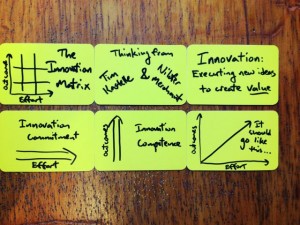 The
Innovation
Matrix
outcome
Effort
Thinking from
Tim
Kastelle
&
Nilofer
Merchant
Innovation:
Executing new ideas
to create value
Innovation
Commitment
Effort
outcomes
Innovation
Competence
outcomes
Effort
It
should
go like
this...